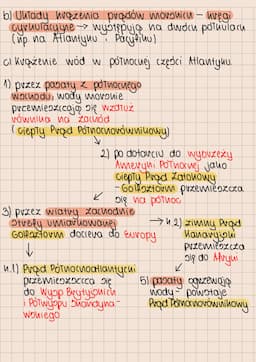 b) Układy krążenia prądów morskich – kręgi
cyrkulacyjne → występują na dwóch półkulach
(np na Atlantyku i Pacyfiku)
c) Krążenie wód w północnej części Atlantyku
1) przez pasaty z północnego
wschodu, wody morskie
przemieszczają się wzdłuż
równika na zachód
(ciepły Prąd Północnorównikowy)
2) po dotarciu do wybrzeży
Ameryki Północnej jako
ciepły Prąd Zatokowy
-Golfsztorm przemieszcza
się na północ
3) przez wiatry zachodnie
strefy umiarkowanej
Golfsztorm dociera do Europy
4.2) zimny Prąd
Kanaryjski
przemieszcza
się do Afryki
4.1) Prąd Północnoatlantycki
przemieszcza się
do Wysp Brytyjskich
i Półwyspu Skandyna-
wskiego
5) pasaty ogrzewają
wody powstaje
Prąd Północnorównikowy